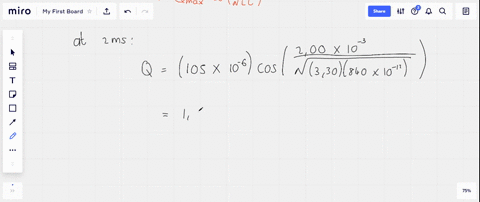 miro My First Board Share
at 2ms:
Q = (105 × 10⁻⁶) cos( 2,00 × 10⁻³ / √(3,30)(840 × 10⁻¹²) )
= 1,
75%